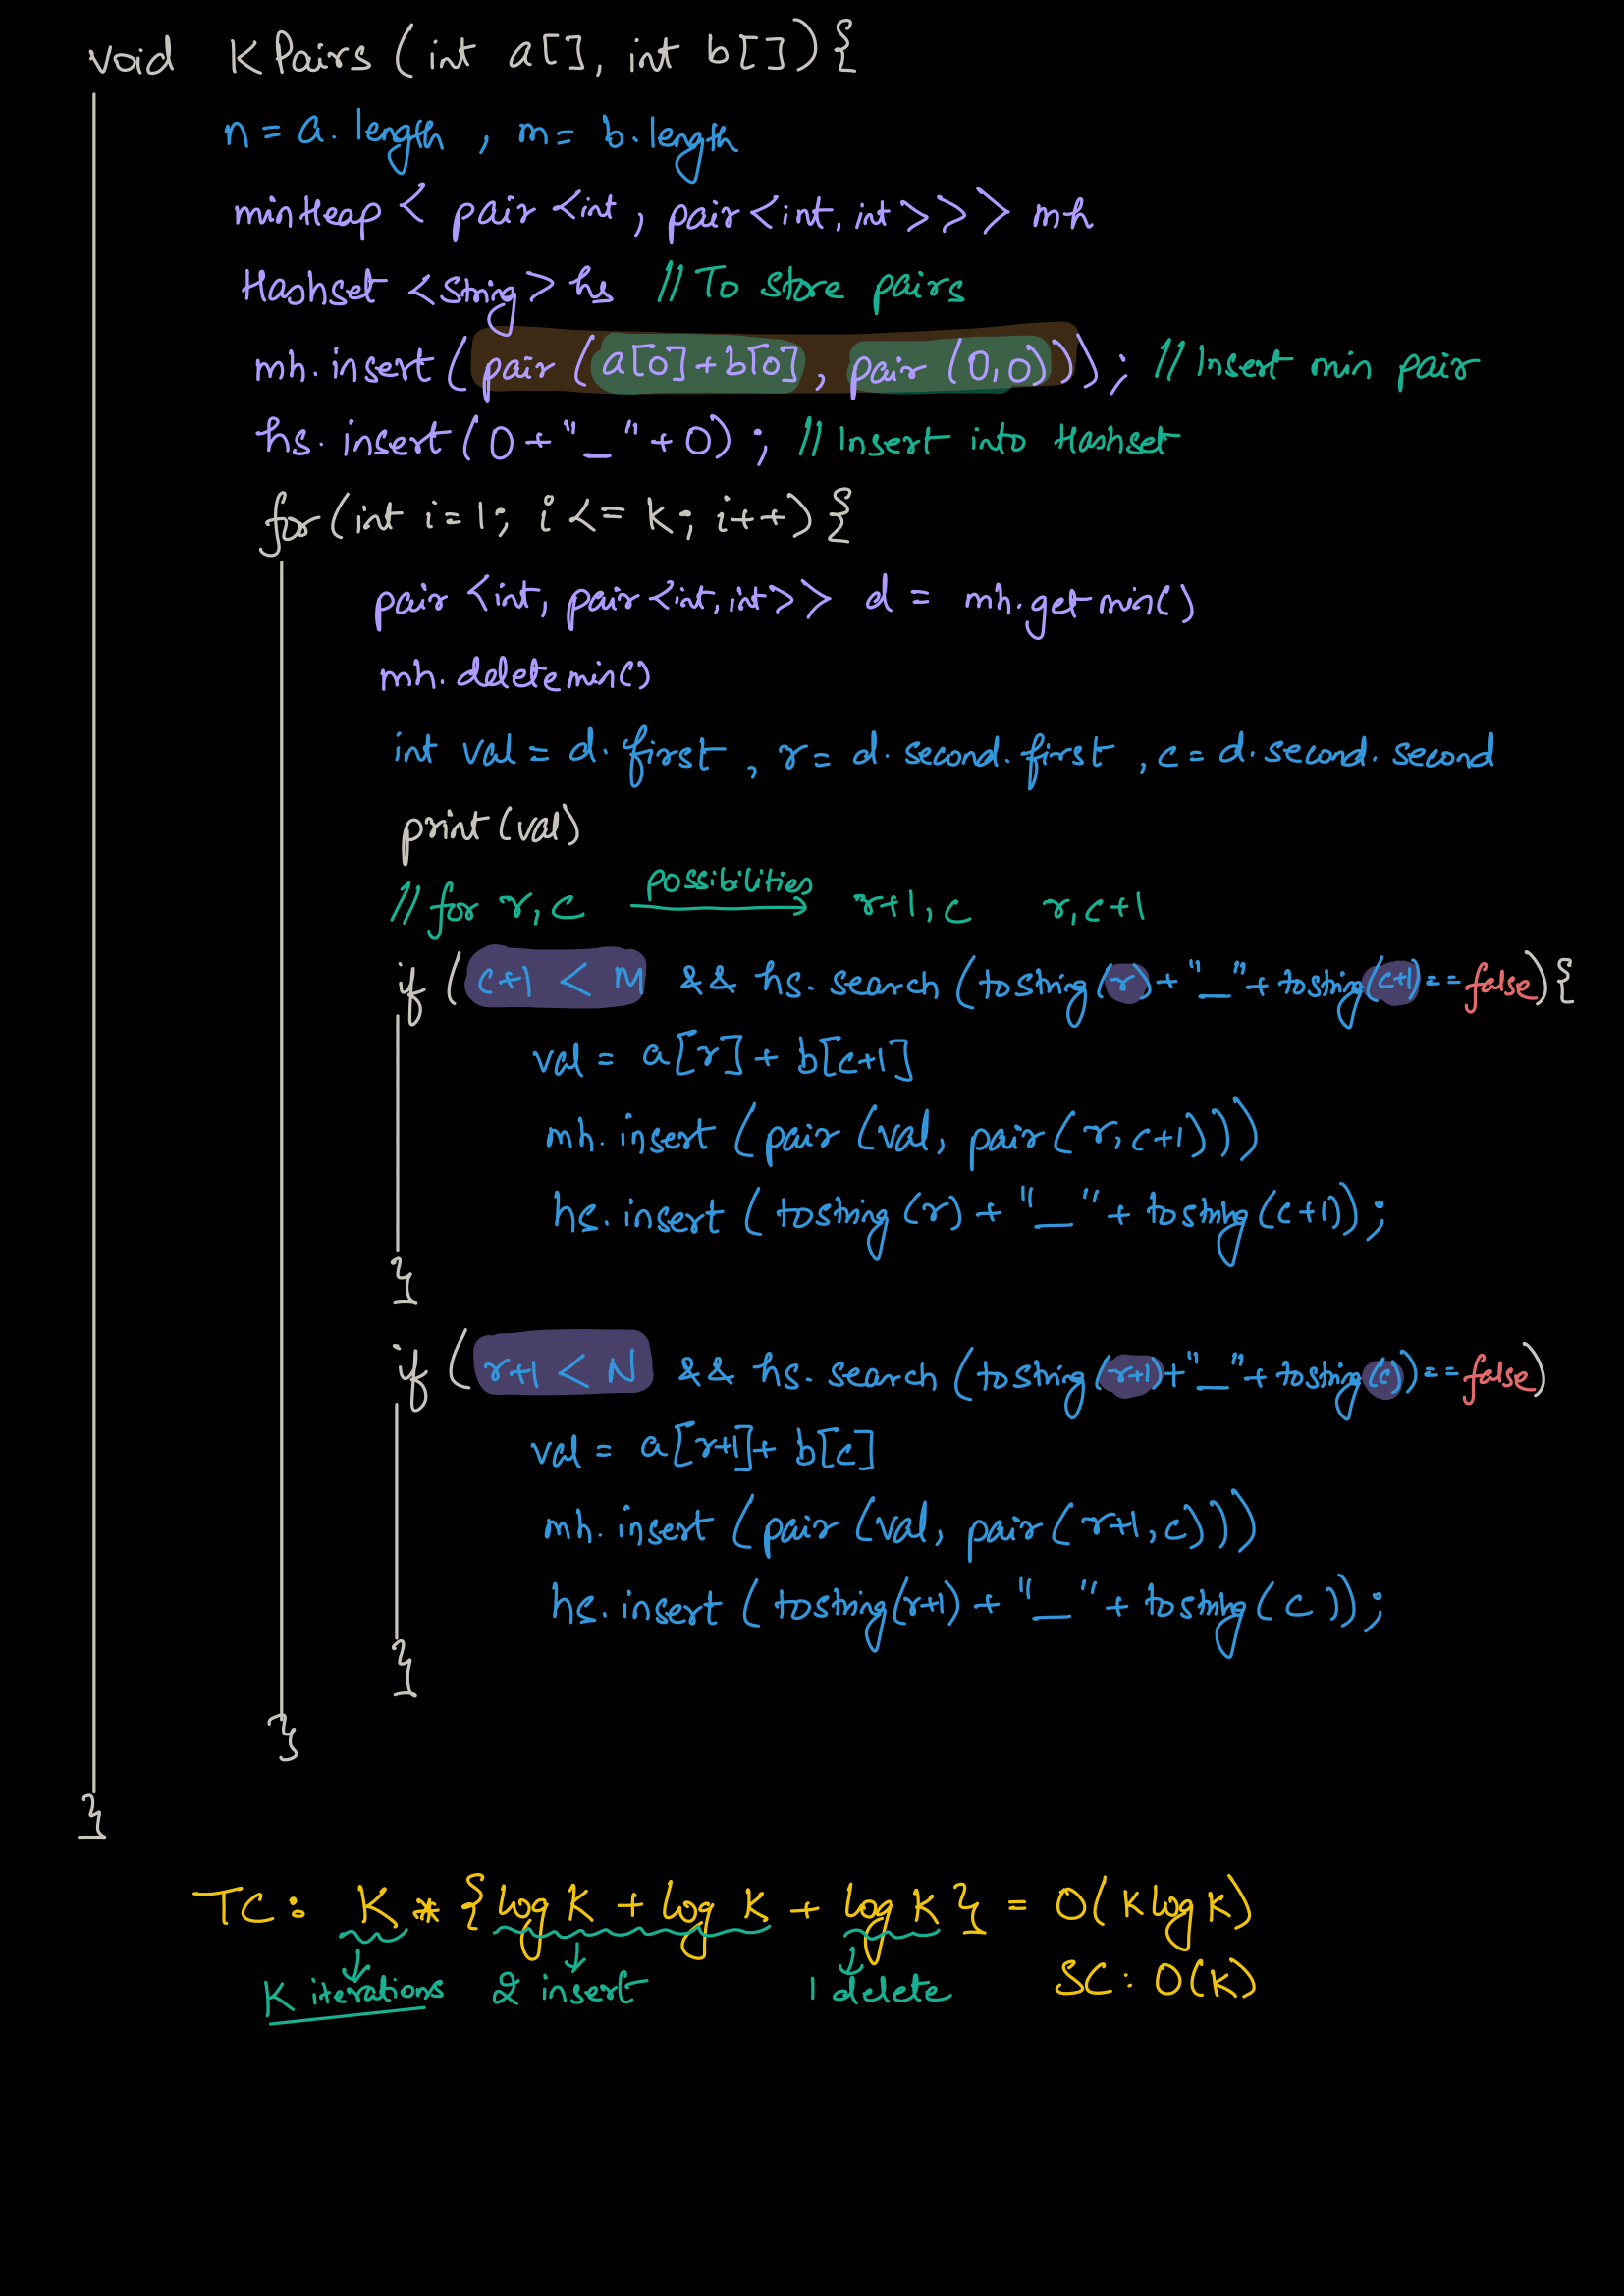 void KPairs (int a[], int b[]){
n = a.length , m = b.length
minHeap < pair <int , pair<int, int>>> mh
Hashset <string> hs // To store pairs
mh.insert ( pair ( a[0]+b[0] , pair (0,0) ) ) ; // Insert min pair
hs.insert ( 0 + "_" + 0 ) ; // Insert into Hashset
for (int i=1; i <= k; i++) {
pair <int, pair<int, int>> d = mh.getmin()
mh.deletemin()
int val = d.first , r = d.second.first , c = d.second.second
print (val)
// for r, c possibilities r+1, c r, c+1
if ( c+1 < M && hs.search (tostring (r) + "_" + tostring (c+1) == false) {
val = a[r] + b[c+1]
mh.insert (pair (val, pair (r, c+1)))
hs.insert (tostring (r) + "_" + tostring (c+1)) ;
}
if ( r+1 < N && hs.search (tostring (r+1) + "_" + tostring (c)) == false)
val = a[r+1] + b[c]
mh.insert (pair (val, pair (r+1, c)))
hs.insert (tostring (r+1) + "_" + tostring ( c )) ;
}
}
}
TC : K * { log K + log K + log K } = O( K log K )
K iterations 2 insert 1 delete SC : O(K)